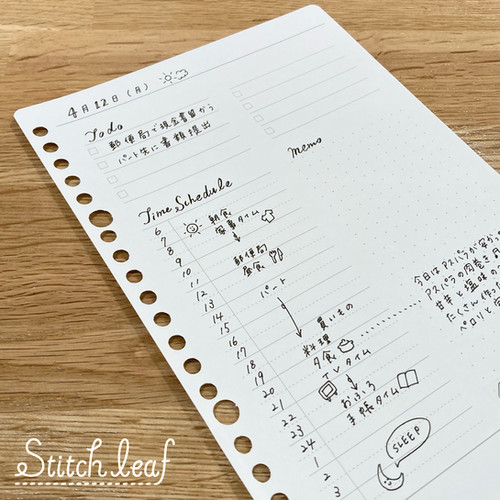 4月12日(月)
Todo
郵便局で現金書留から
パート先に書類提出
memo
Time Schedule
6
7 朝食
8 家事タイム
9
10 郵便局
11 昼食
12
13 パート
14
15
16 買いもの
17
18 料理
19 夕食
20 TVタイム
21
22 おふろ
23 手帳タイム
24
1
2 SLEEP
3
今日はアスパラが安か
アスパラの肉巻き
甘辛と塩味の
たくさん作
ペロリと
Stitch leaf